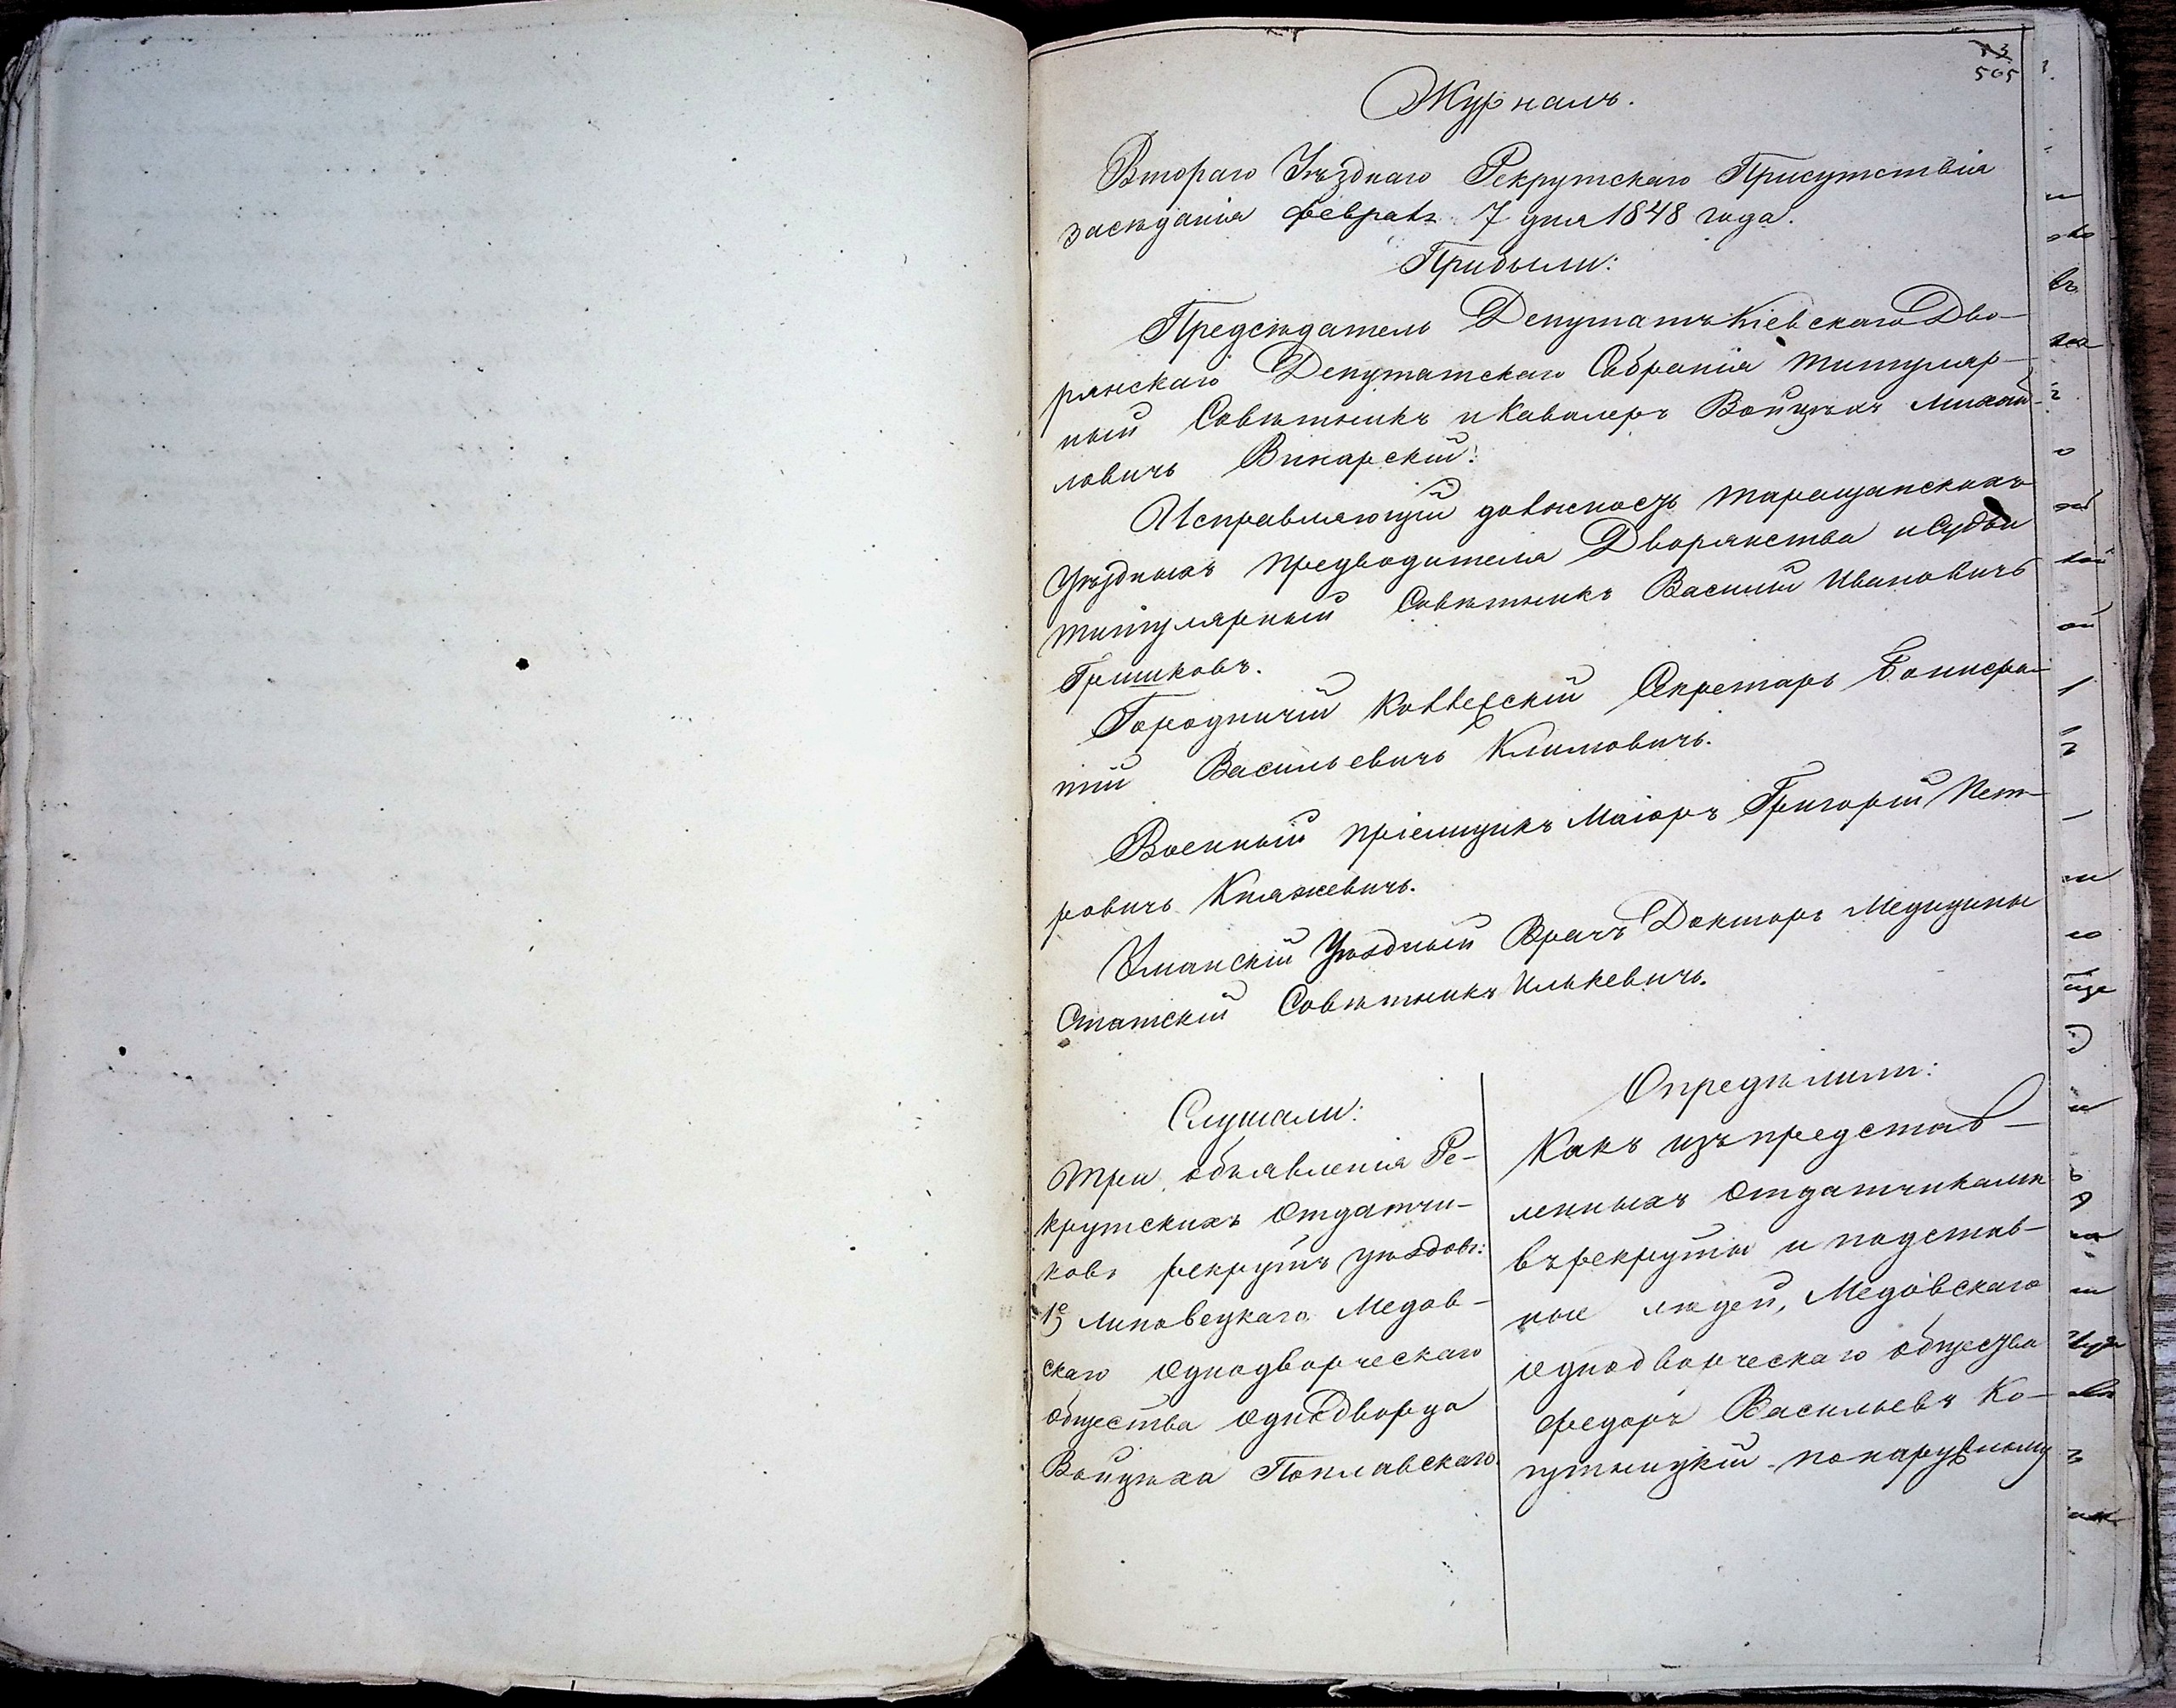 565
Журналъ.
Втораго Уѣзднаго Рекрутскаго Присутствія
засѣданія февраля 7 дня 1848 года.
Прибыли:
Предсѣдатель Депутатъ Кіевскаго Дво-
рянскаго Депутатскаго Собранія титуляр-
ный Совѣтникъ и Кавалеръ Войцѣхъ Михай-
ловичъ Винарскій.
Исправляющій должность таращанскихъ
Уѣздныхъ предводителя Дворянства и Судьи
титулярный Совѣтникъ Василій Ивановичъ
Гришковъ.
Городничій Коллежскій Секретарь Бонифа-
тій Васильевичъ Климовичъ.
Военный пріемщикъ Маіоръ Григорій Пет-
ровичъ Княжевичъ.
Уманскій Уѣздный Врачъ Докторъ Медицины
Статскій Совѣтникъ Илькевичъ.
Слушали:
три объявленія Ре-
крутскихъ Отдатчи-
ковъ рекрутъ уѣздовъ:
1е Липовецкаго Медов-
скаго Однодворческаго
общества однодворца
Войцѣха Поплавскаго.
Опредѣлили:
Какъ изъ представ-
ленныхъ Отдатчиками
въ рекруты и подстав-
ные людей, Медовскаго
Однодворческаго общества
Федоръ Васильевъ Ко-
путницкій по наружному